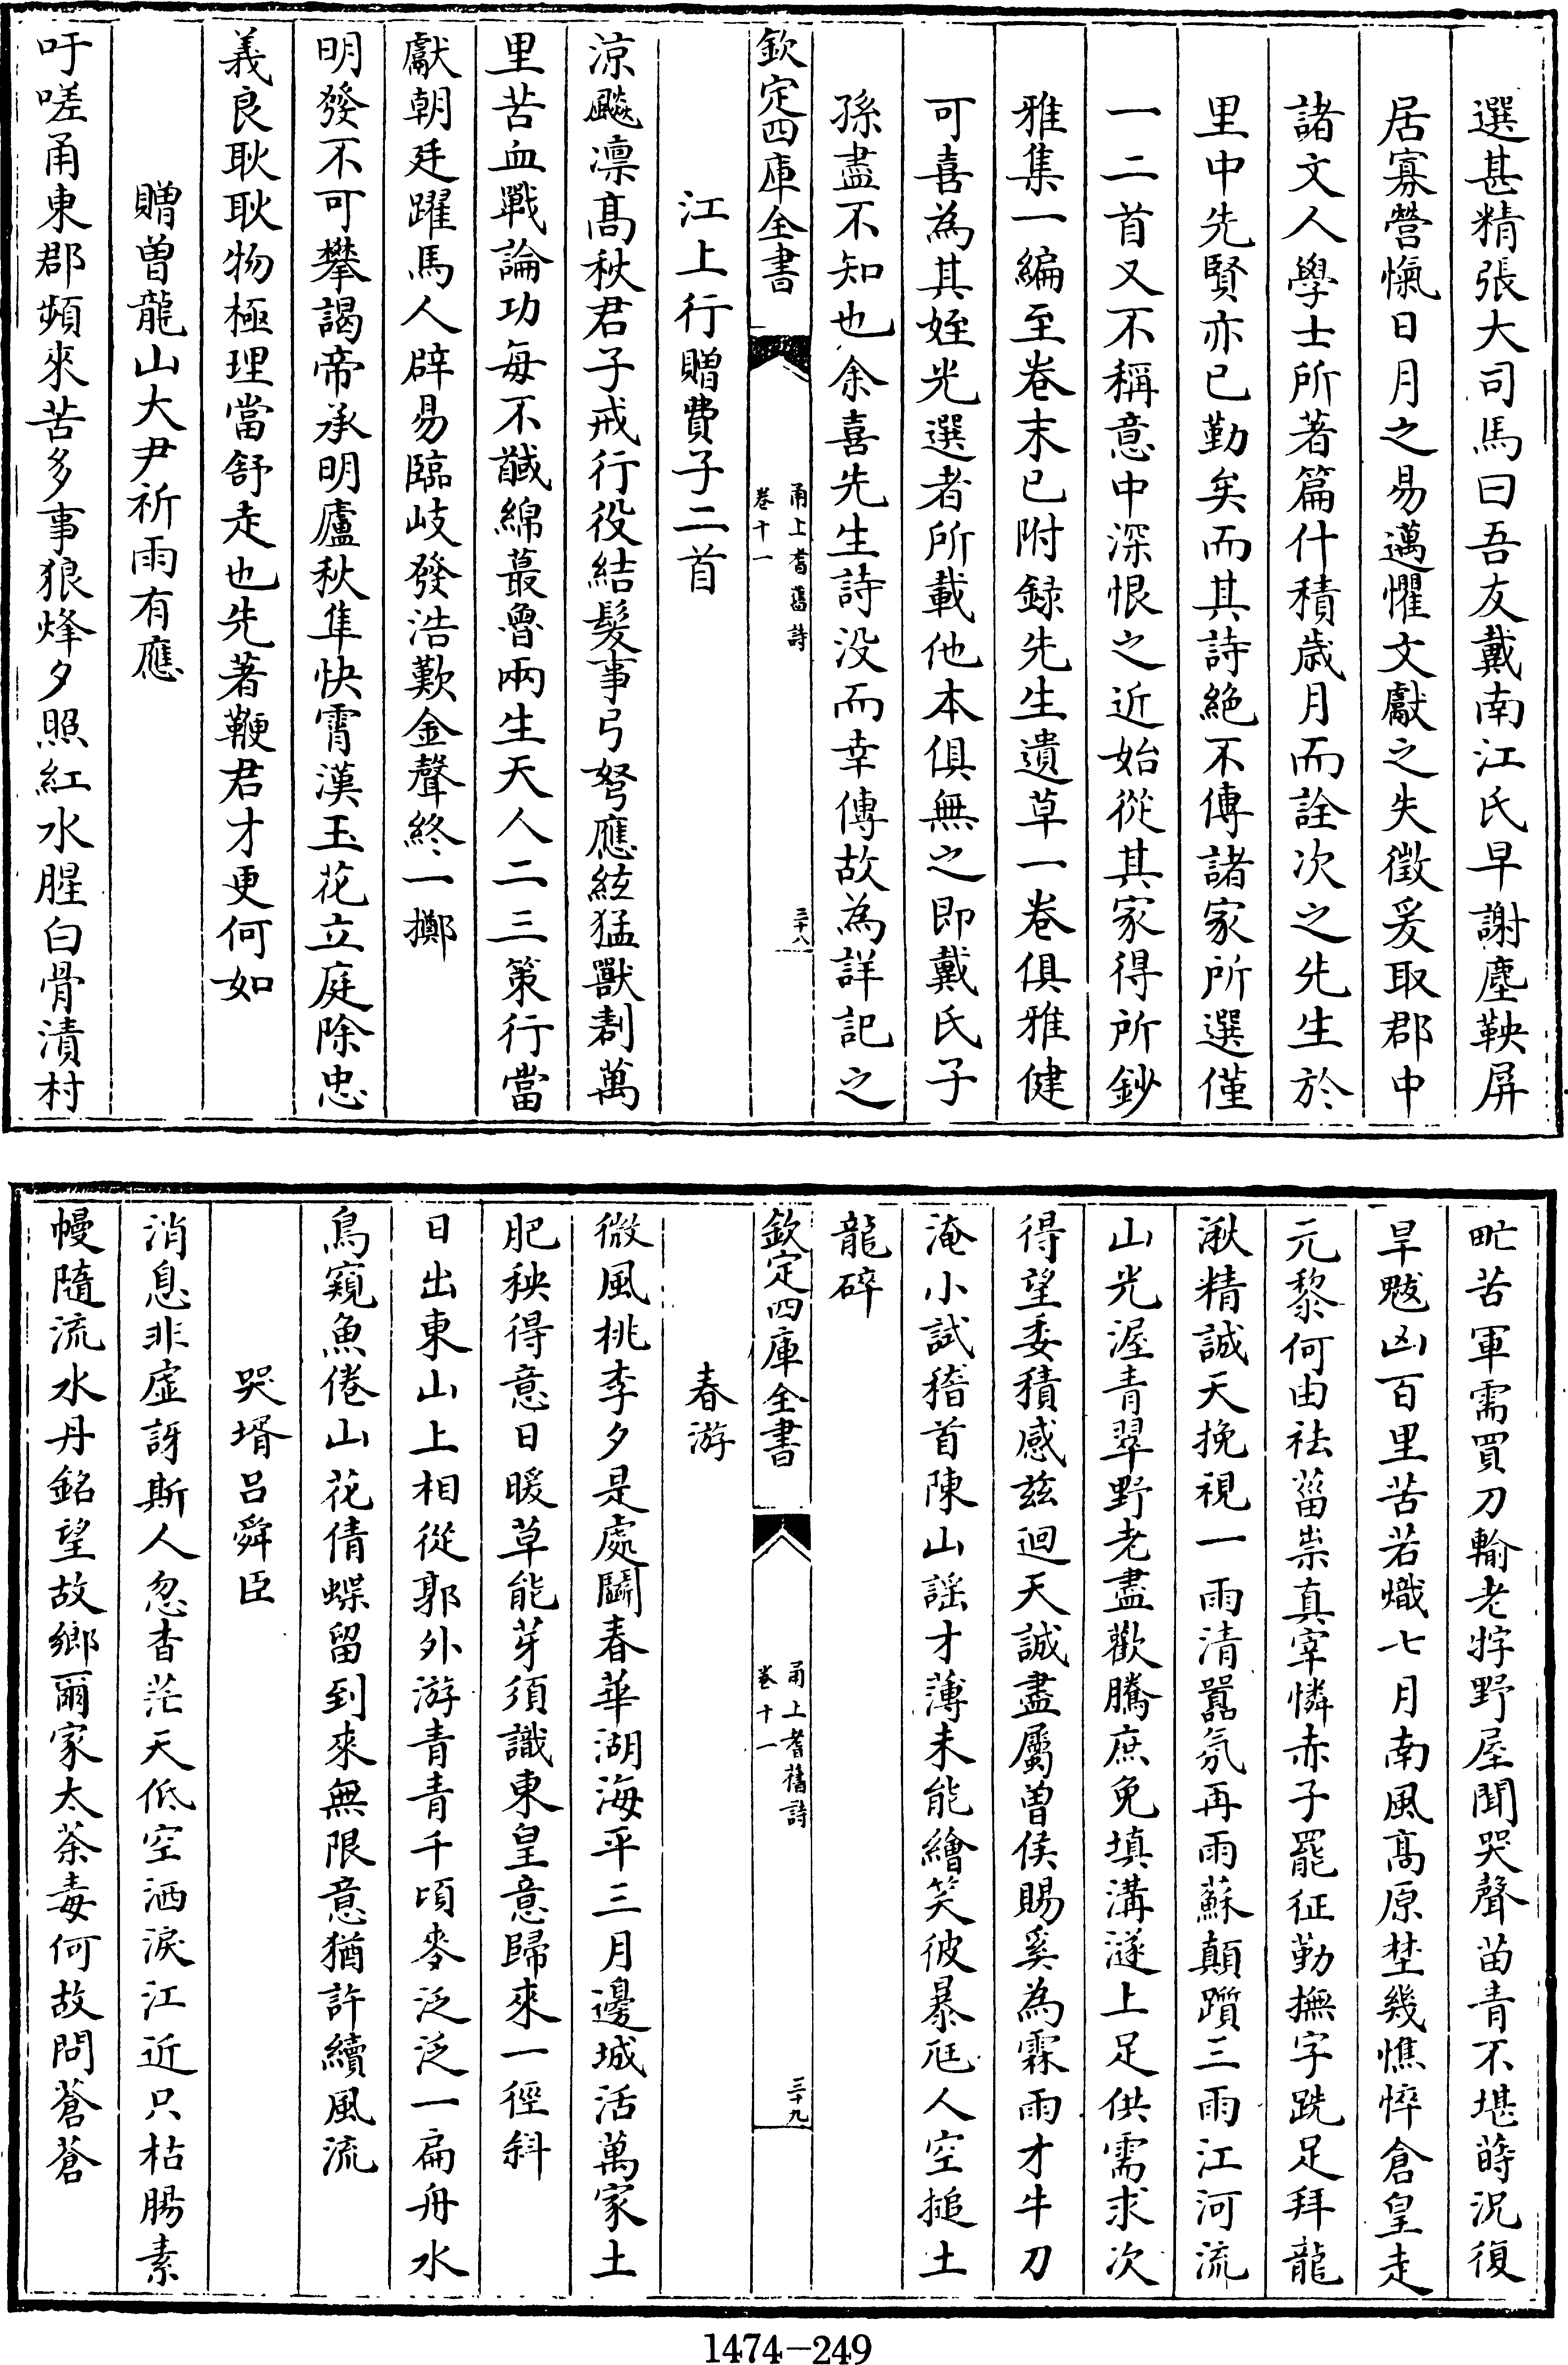 選甚精張大司馬曰吾友戴南江氏早謝塵鞅屏
居寡營愾日月之易邁懼文獻之失徵爰取郡中
諸文人學士所著篇什積歲月而詮次之先生於
里中先賢亦已勤矣而其詩絶不傳諸家所選僅
一二首又不稱意中深恨之近始從其家得所鈔
雅集一編至卷末已附録先生遺草一卷俱雅健
可喜為其姪光選者所載他本俱無之即戴氏子
孫盡不知也余喜先生詩没而幸傳故為詳記之
欽定四庫全書
甬上耆舊詩
卷十一
三十八
江上行贈費子二首
涼飈凛髙秋君子戒行役結髮事弓弩應絃猛獸剨萬
里苦血戰論功每不馘綿蕞魯兩生天人二三策行當
獻朝廷躍馬人辟易臨岐發浩歎金聲終一擲
明發不可攀謁帝承明廬秋隼快霄漢玉花立庭除忠
義良耿耿物極理當舒走也先著鞭君才更何如
贈曽龍山大尹祈雨有應
吁嗟甬東郡頻來苦多事狼烽夕照紅水腥白骨漬村
甿苦軍需買刀輸老牸野屋聞哭聲苗青不堪蒔況復
旱魃凶百里苦若熾七月南風髙原埜幾憔悴倉皇走
元黎何由祛菑祟真宰憐赤子罷征勤撫字跣足拜龍
湫精誠天挽視一雨清囂氛再雨蘇顛躓三雨江河流
山光渥青翠野老盡歡騰庶免填溝遂上足供需求次
得望委積感兹迴天誠盡屬曽侯賜奚為霖雨才牛刀
淹小試稽首陳山謡才薄未能繪笑彼暴尫人空搥土
龍碎
欽定四庫全書
甬上耆舊詩
卷十一
三十九
春游
微風桃李夕是處鬭春華湖海平三月邊城活萬家土
肥秧得意日暖草能芽須識東皇意歸來一徑斜
日出東山上相從郭外游青青千頃麥泛泛一扁舟水
鳥窺魚倦山花倩蝶留到來無限意猶許續風流
哭壻吕舜臣
消息非虚訝斯人忽杳茫天低空洒淚江近只枯腸素
幔隨流水丹銘望故鄉爾家太荼毒何故問蒼蒼
1474-249